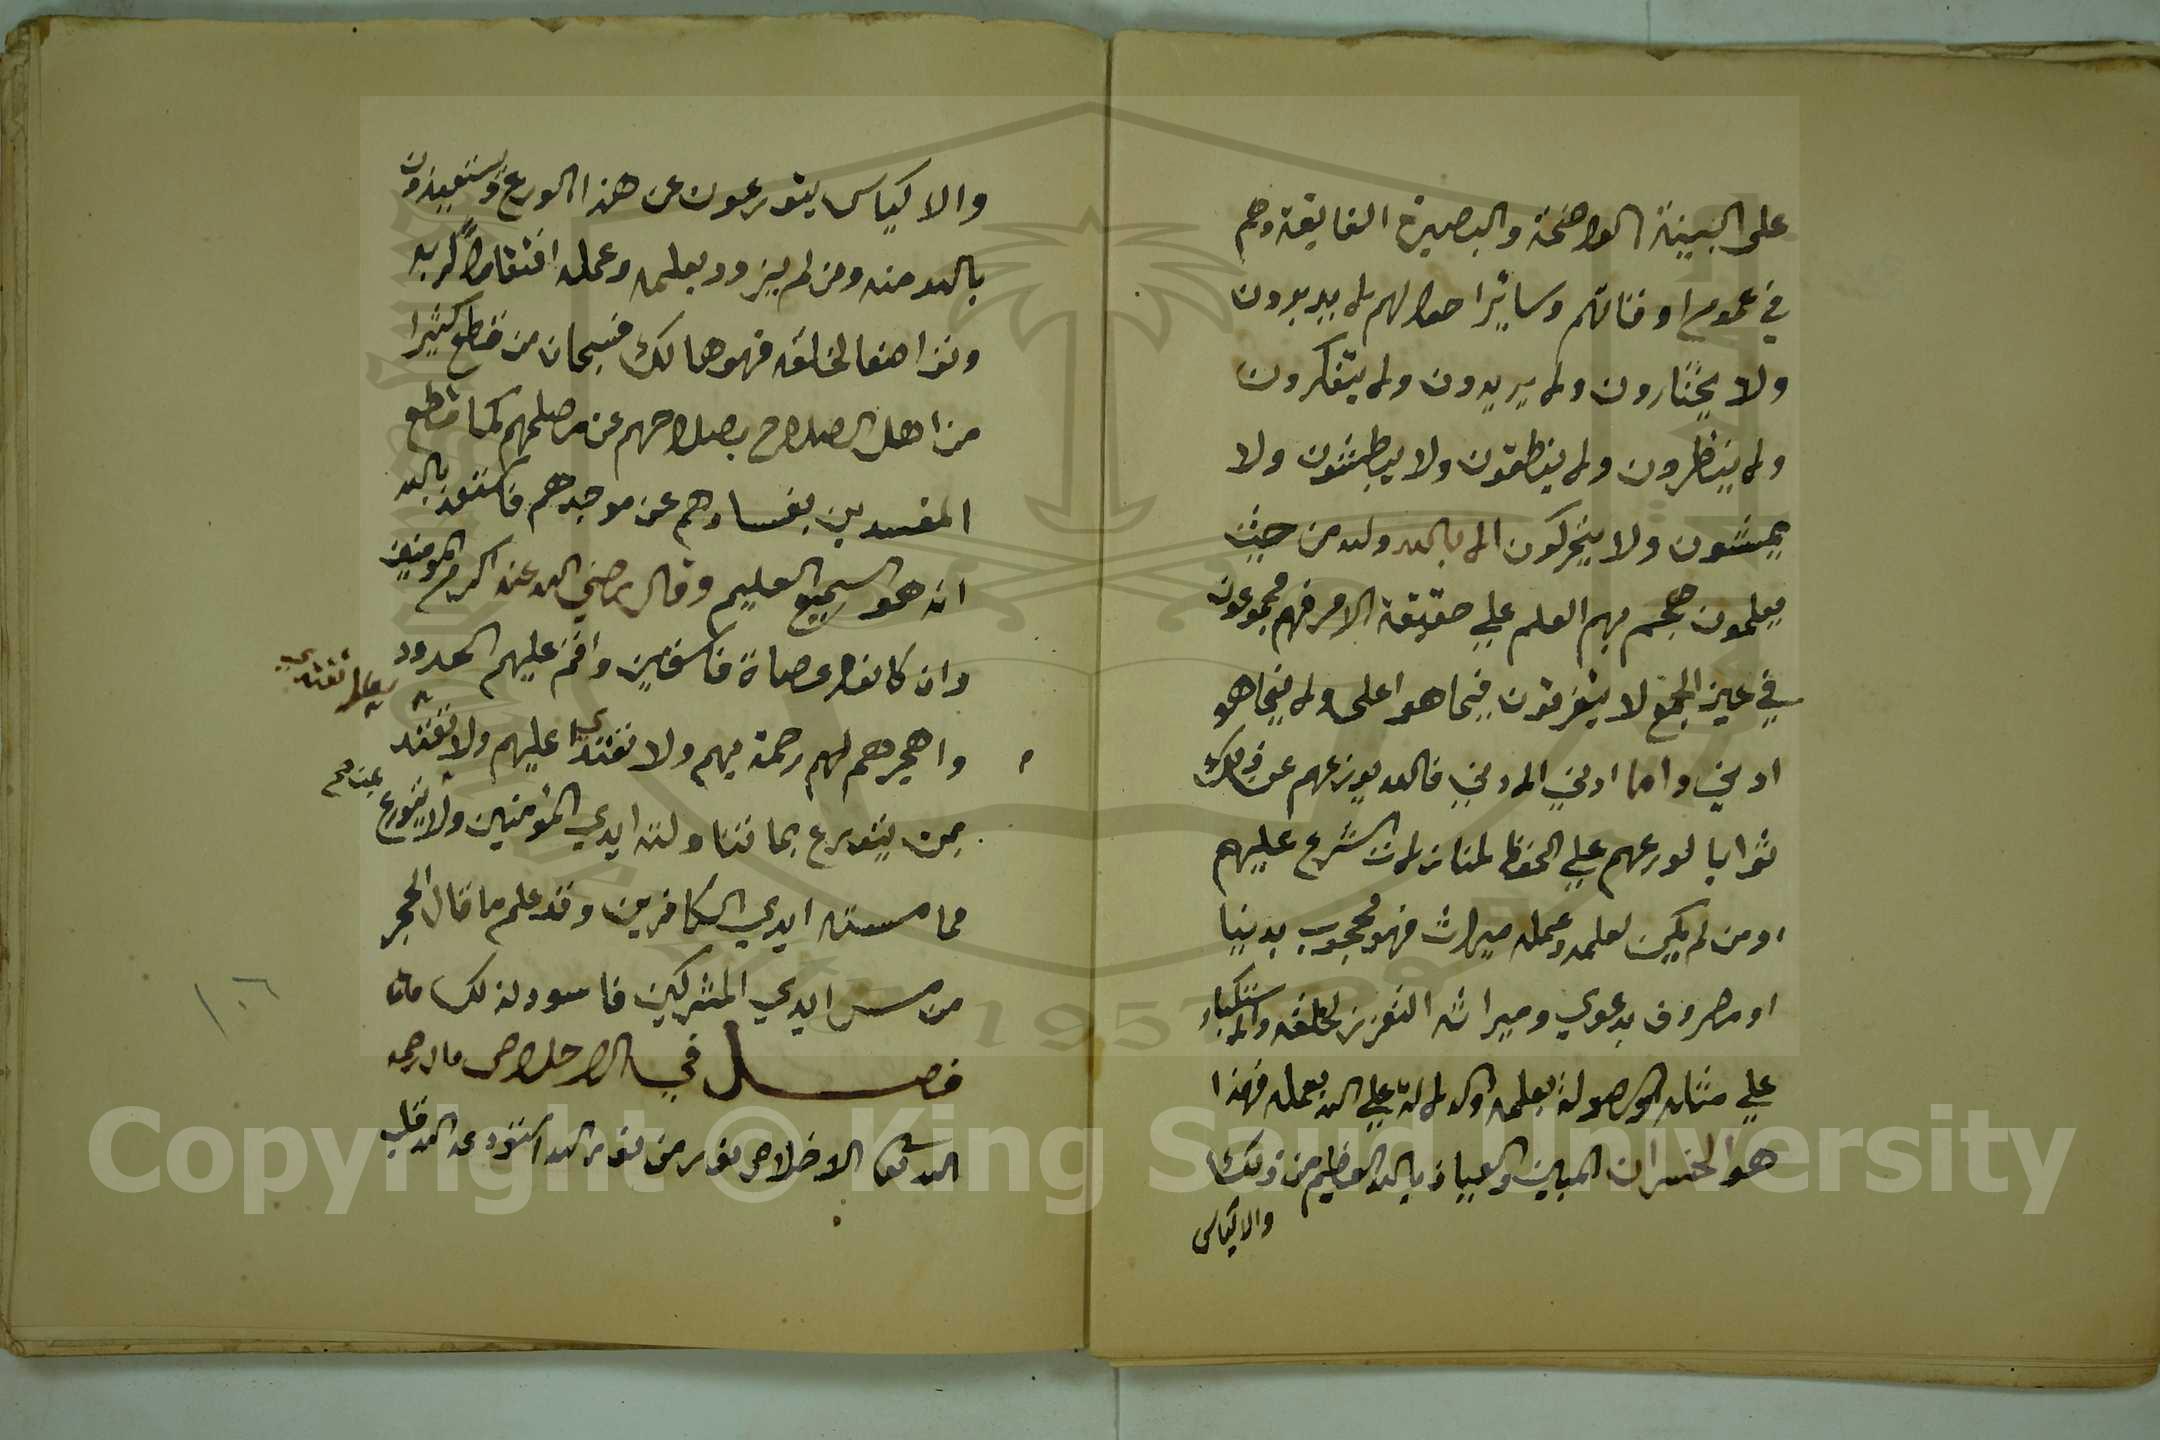 على البينة الواضحة والبصيرة الفايقة وهم
في عموم اوقاتهم وساير احوالهم لا يدبرون
ولا يختارون ولا يريدون ولا يتفكرون
ولا ينظرون ولا ينطقون ولا يبطشون ولا
يمشون ولا يتحركون الا بالله ولله من حيث
يعلمون هجم بهم العلم علي حقيقة الامر فهم مجموعون
في عين الجمع لا يتفرقون فيما هو اعلى ولا فيما هو
ادني واما ادني الادني فالله يورعهم عن ذلك
ثوابا لورعهم علي الحفظ لمنازلات الشرع عليهم
ومن لم يكن لعلمه وعمله ميراث فهو محجوب بدنيا
او مصروف بدعوي وميراثه التعزز لخلقه والاستكبار
علي مثله والصولة بعلمه والدلالة علي الله بعمله فهذا
هو الخسران المبين والعياذ بالله العظيم من ذلك
والاكياس
والاكياس يتورعون عن هذا الورع ويستعيذون
بالله منه ومن لم يزدد بعلمه وعمله افتقارا لربه
وتواضعا لخلقه فهو هالك فسبحان من قطع كثيرا
من اهل الصلاح بصلاحهم عن مصلحهم كما قطع
المفسدين بفسادهم عن موجدهم فاستعذ بالله
انه هو السميع العليم وقال رضي الله عنه اكرم المومنين
وان كانوا عصاة فاسقين واقم عليهم الحدود
واهجرهم لهم رحمة بهم ولا تقتدي عليهم ولا تقتد
بمن يتورع بما تناولته ايدي المؤمنين ولا يتورع
مما مسته ايدي الكافرين وقد علم ما قال الحجر
من مس ايدي المشركين فاسود لذلك
فصل في الاخلاص قال رحمه
الله تعالى الاخلاص نور من نور الله استودعه الله قلب
١٠٦
Copyright © King Saud University
1957